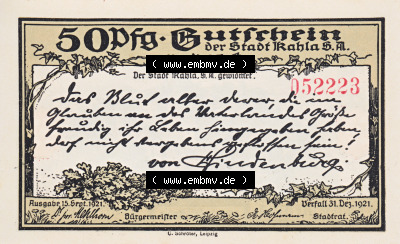 www.embmv.de
50 Pfg. Gutschein
der Stadt Kahla S.A.
Der Stadt Kahla, S.A. gewidmet.
052223
Das Blut aller derer, die im
Glauben an des Vaterlandes Größe
freudig ihr Leben hingegeben haben,
darf nicht vergebens geflossen sein!
von Hindenburg.
www.embmv.de
Ausgabe 15. Sept. 1921.
Bürgermeister
Verfall 31. Dez. 1921.
Stadtrat.
G. Schreiber, Leipzig
www.embmv.de